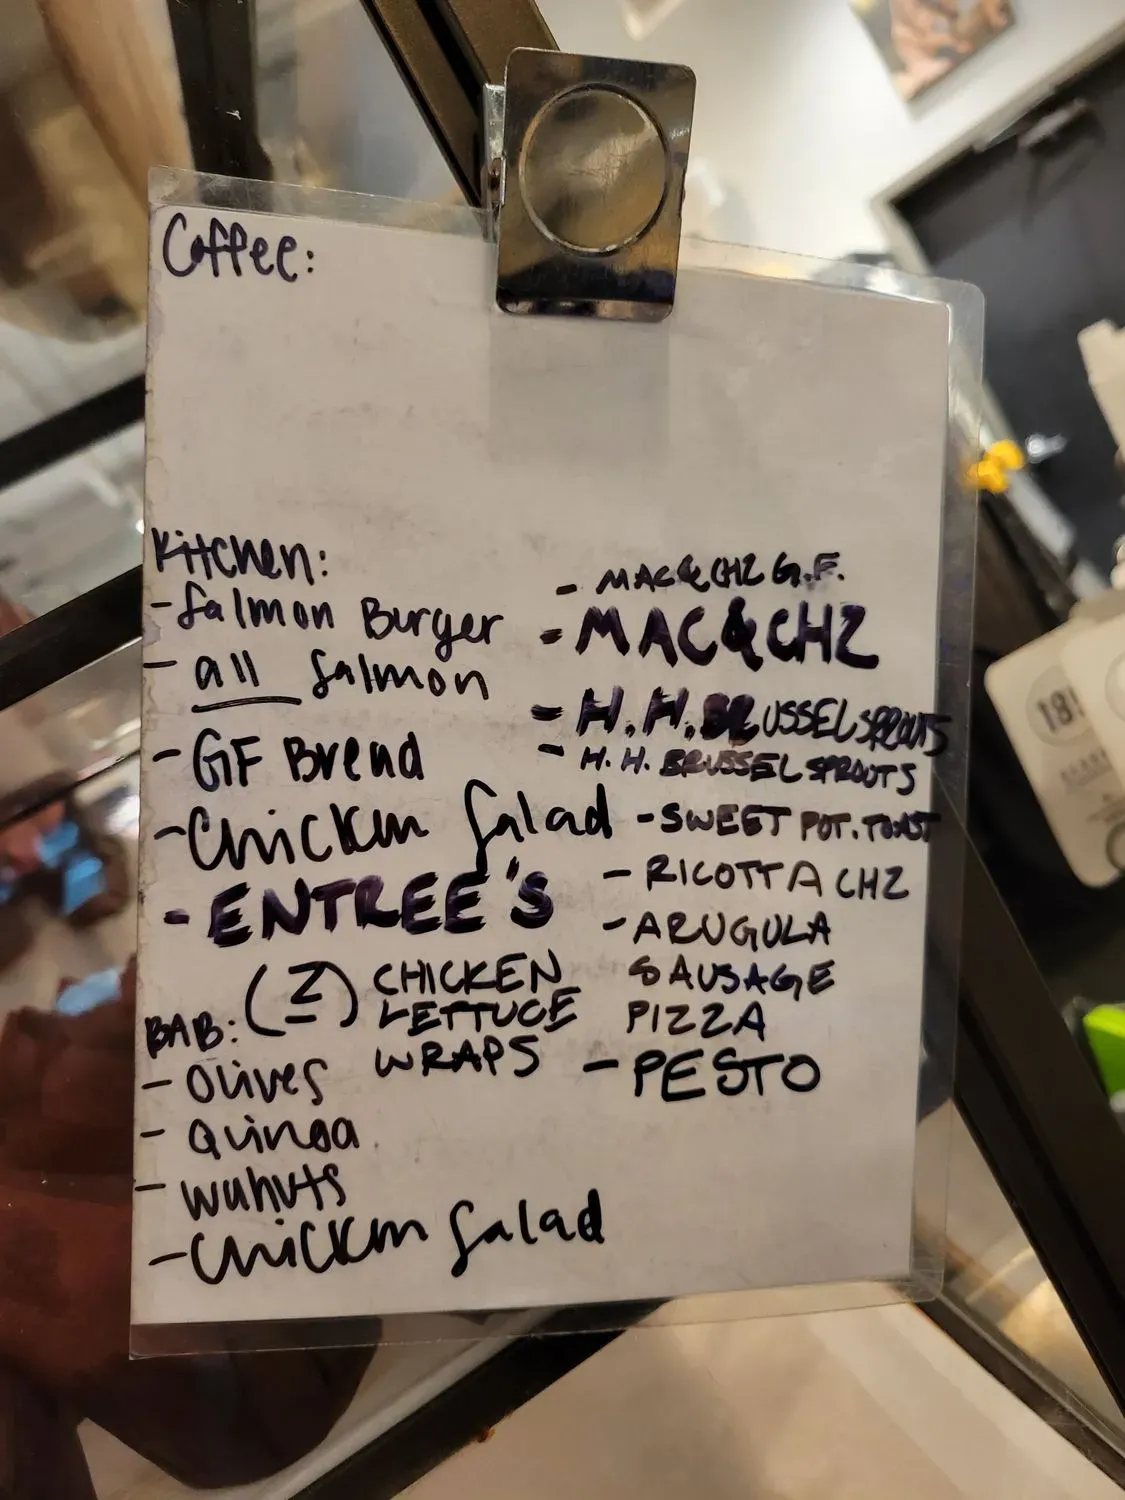 Coffee:
Kitchen:
- Salmon Burger
- all Salmon
- GF Bread
- Chicken Salad
- ENTREE'S
(2) CHICKEN
LETTUCE
WRAPS
- MAC&CHZ G.F.
- MAC&CHZ
- H.H. BRUSSEL SPROUTS
- H.H. BRUSSEL SPROUTS
- SWEET POT. TOAST
- RICOTTA CHZ
- ARUGULA
SAUSAGE
PIZZA
- PESTO
BAB:
- Olives
- Quinoa
- Walnuts
- Chicken Salad
181